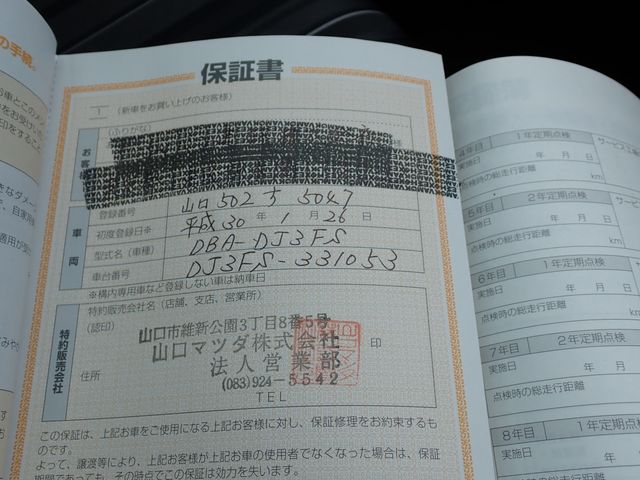 の手続
保証書
1 (新車をお買い上げのお客様)
(ふりがな)
お客様
車両
登録番号 山口 502 す 5047
初度登録日※ 平成 30 年 1 月 26 日
型式名(車種) DBA-DJ3FS
車台番号 DJ3FS-331053
※構内専用車など登録しない車は納車日
特約販売会社
特約販売会社名(店舗、支店、営業所)
(認印)
山口市維新公園3丁目8番5号
山口マツダ株式会社
法人営業部
印
住所
(083)924-5542
TEL
この保証は、上記お車をご使用になる上記お客様に対し、保証修理をお約束するも
のです。
よって、譲渡等により、上記お客様が上記お車の使用者でなくなった場合は、保証
期間であっても、その時点でこの保証は効力を失います。
1年定期点検
実施日 年 月 日
点検時の総走行距離 km
5年目 2年定期点検
実施日 年 月 日
点検時の総走行距離
6年目 1年定期点検
実施日 年 月 日
点検時の総走行距離
7年目 2年定期点検
実施日 年 月
点検時の総走行距離
8年目 1年定期点検
実施日 年 月
点検時の総走行距離